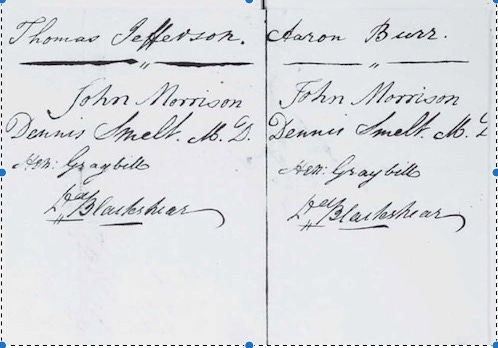 Thomas Jefferson.
John Morrison
Dennis Smelt. M. D.
Hen: Graybill
Dad Blackshear
Aaron Burr.
John Morrison
Dennis Smelt. M. D
Hen: Graybill
Dad Blackshear